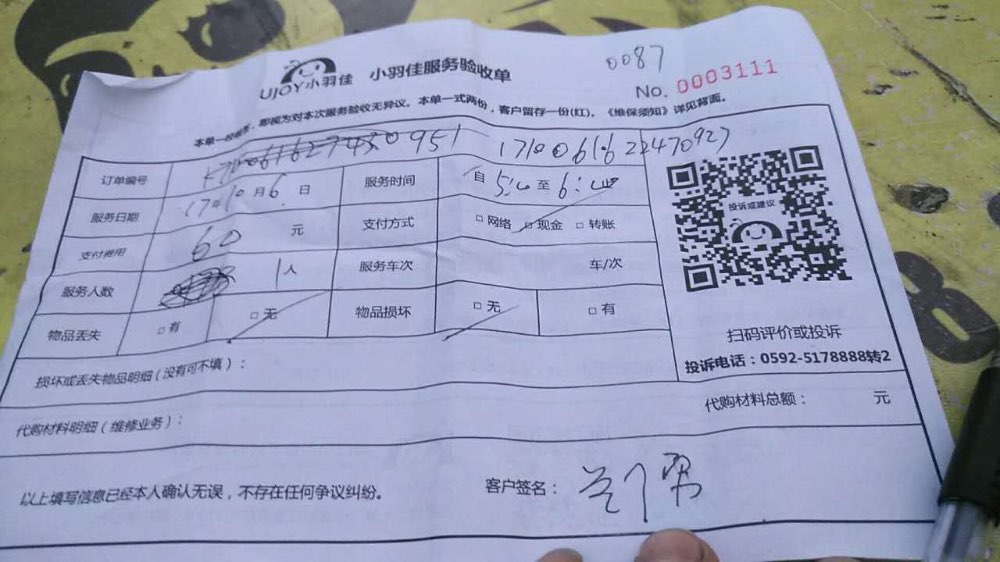 UJOY小羽佳 小羽佳服务验收单 0087
No. 0003111
本单一经签署，即视为对本次服务验收无异议。本单一式两份，客户留存一份(红)。《维保须知》详见背面。
订单编号 1710061622470927
服务日期 17年10月6日 服务时间 自5:00至6:00
支付费用 60元 支付方式 □网络 □现金 □转账
服务人数 1人 服务车次 车/次
物品丢失 □有 □无 物品损坏 □无 □有
投诉或建议
扫码评价或投诉
投诉电话：0592-5178888转2
损坏或丢失物品明细(没有可不填)：
代购材料明细(维修业务)： 代购材料总额： 元
以上填写信息已经本人确认无误，不存在任何争议纠纷。 客户签名：